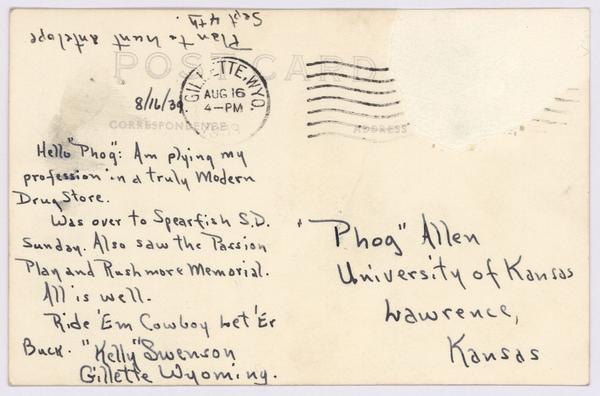 Plan to hunt antelope
Sept 4th.
POST CARD
GILLETTE, WYO.
AUG 16
4-PM
8/16/39.
CORRESPONDENCE
ADDRESS
Hello "Phog": Am plying my
profession in a truly Modern
Drug Store.
Was over to Spearfish S.D.
Sunday. Also saw the Passion
Play and Rushmore Memorial.
All is well.
Ride 'Em Cowboy Let 'Er
Buck. "Kelly" Swenson
Gillette Wyoming.
"Phog" Allen
University of Kansas
Lawrence,
Kansas